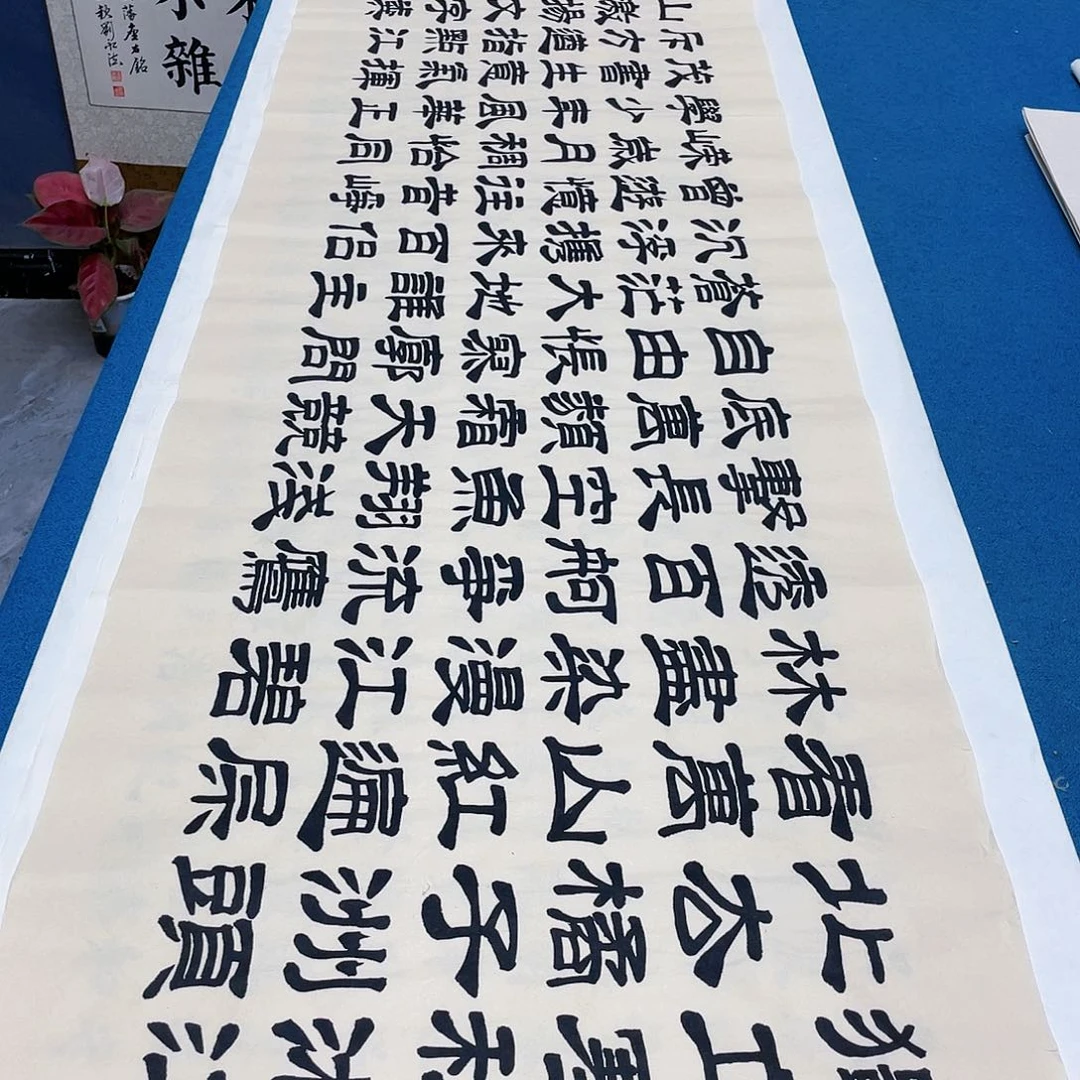 北去橘子洲頭
看萬山紅遍層
林盡染漫江碧
透百舸爭流鷹
擊長空魚翔淺
底萬類霜天競
自由悵寥廓問
蒼茫大地誰主
沉浮攜來百侶
曾遊憶往昔崢
嶸歲月稠恰同
學少年風華正
茂書生意氣揮
斥方遒指點江
山激揚文字
雜